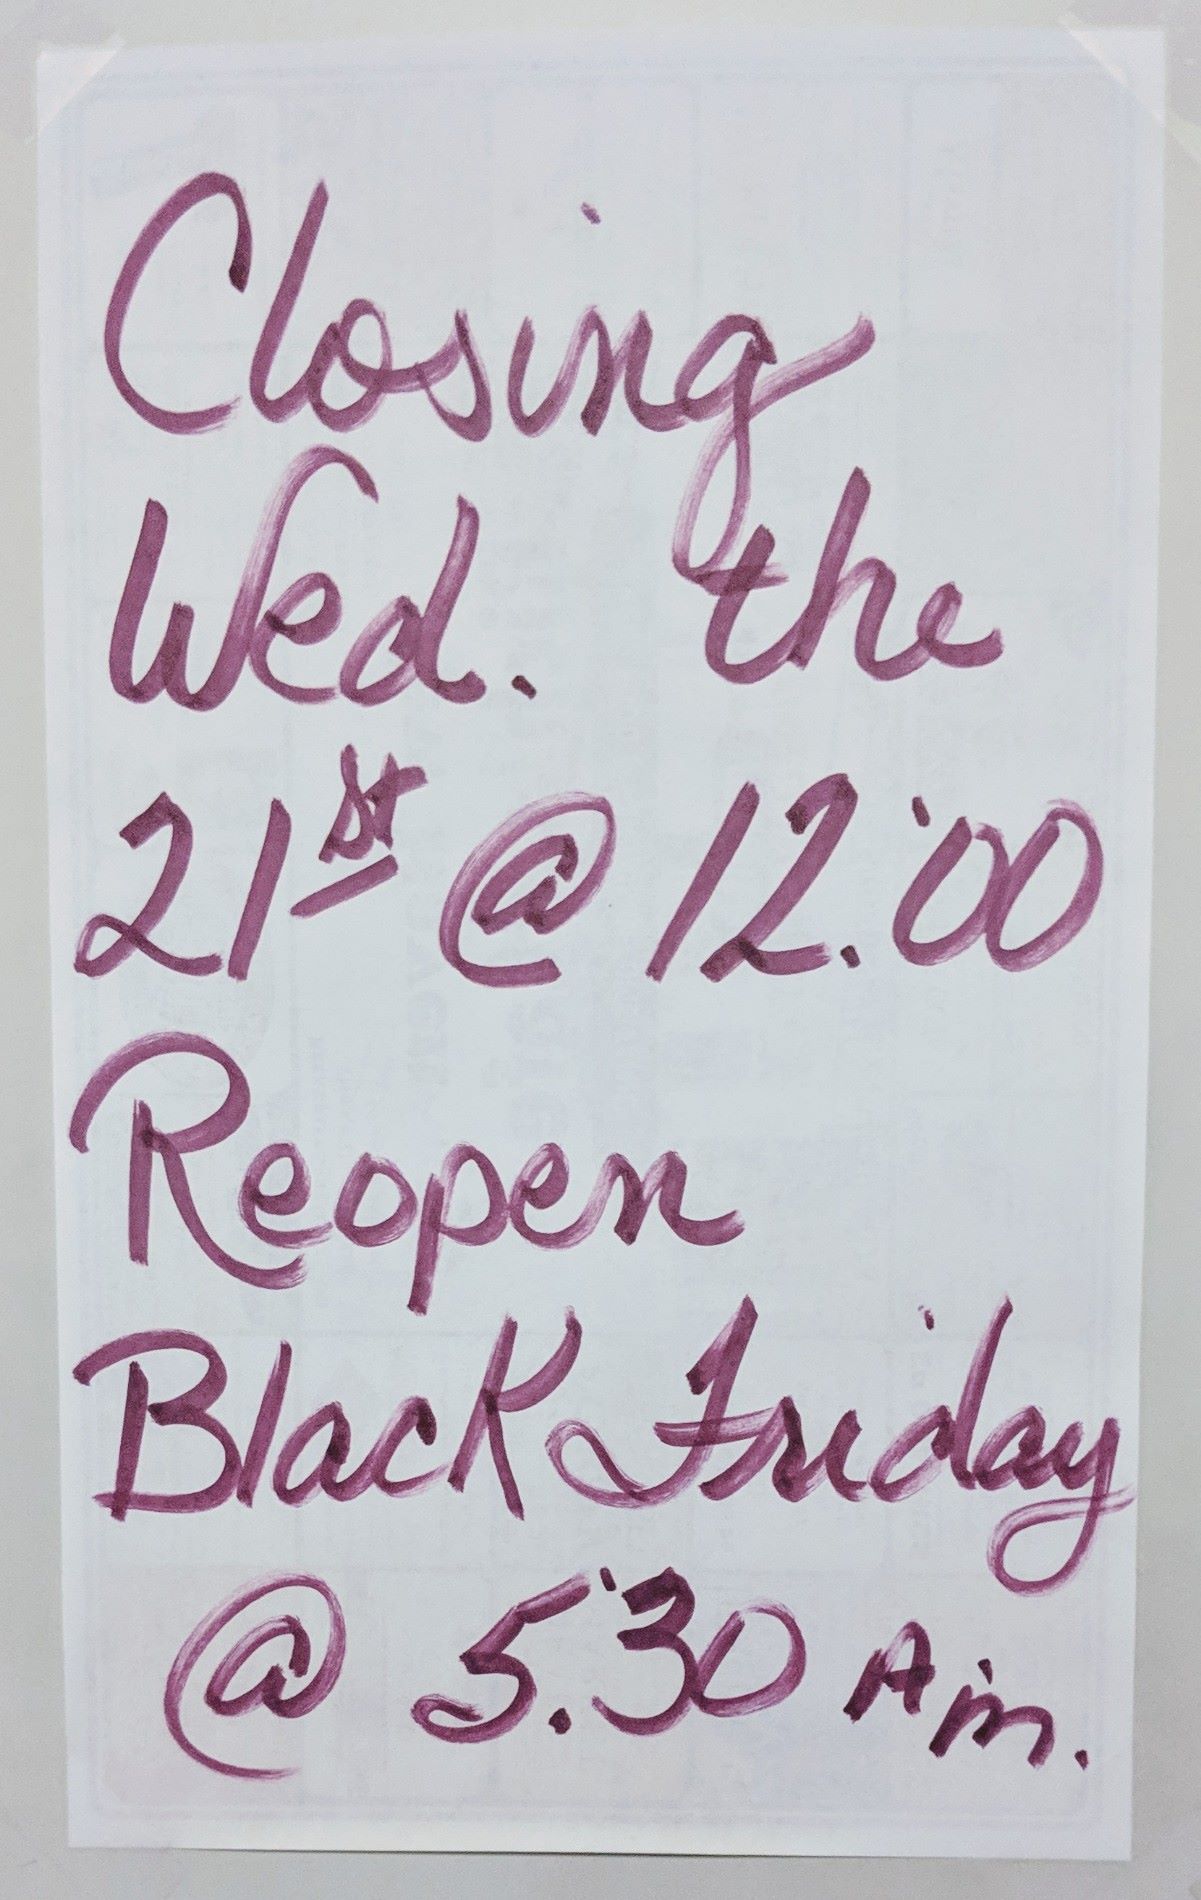 Closing
Wed. the
21st @ 12:00
Reopen
Black Friday
@ 5:30 Am.